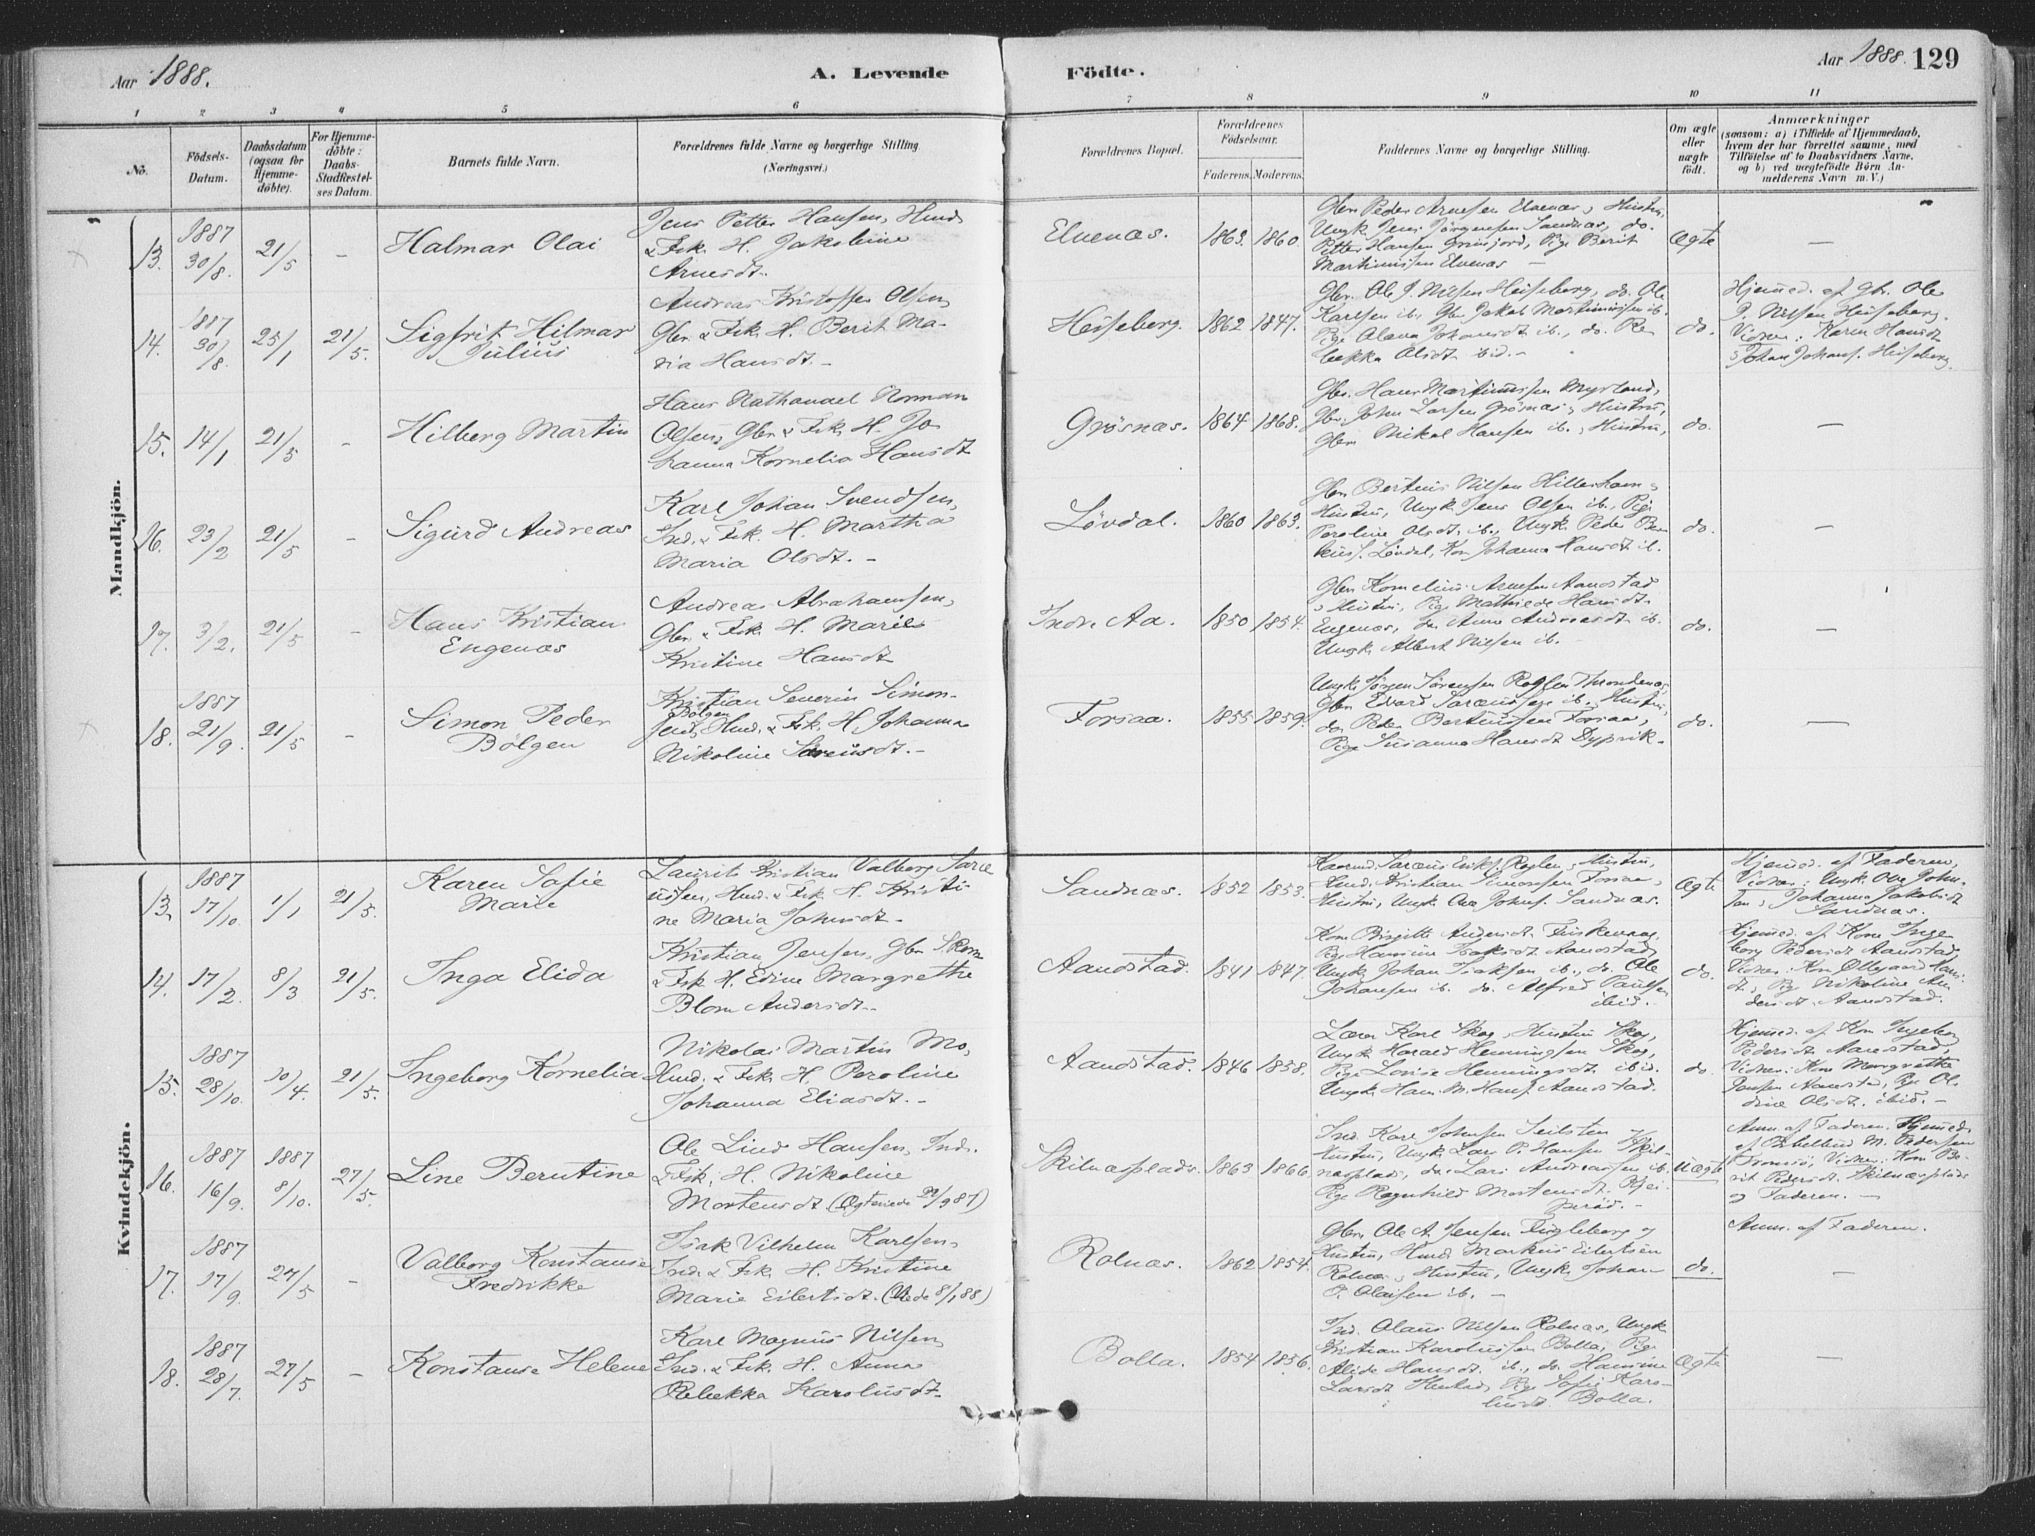 Aar 1888.
A. Levende
Födte.
Aar 1888. 129
1 2 3 4 5 6 7 8 9 10 11
No.
Födsels-
Datum.
Daabsdatum
(ogsaa for
Hjemme-
döbte).
For Hjemme-
döbte:
Daabs-
Stadfæstel-
ses Datum.
Barnets fulde Navn.
Forældrenes fulde Navne og borgerlige Stilling
(Næringsvei.)
Forældrenes Bopæl.
Forældrenes
Födselsaar.
Faderens. Moderens.
Faddernes Navne og borgerlige Stilling.
Om ægte
eller
uægte
födt.
Anmærkninger
(saasom: a) i Tilfælde af Hjemmedaab,
hvem der har forrettet samme, med
Tilföielse af to Daabsvidners Navne,
og b) ved uægtefödte Börn An-
melderens Navn m. V.)
Mandkjön.
13. 1887 30/8. 21/5 - Halmar Olai
Jens Petter Hansen, Hmd.
& Fsk. H. Jakobine
Arnesdt.
Elvenæs. 1863. 1860.
Gbr. Peder Arnesen Elvenæs, Hustru,
Ungk. Jens Jörgensen Sandnæs, do.
Petter Hansen Grinjord, Pige Berit
Martinussen Elvenæs -
Ægte -
14. 1887 30/8 25/1 21/5. Sigfrit Hilmar
Julius
Andreas Kristoffer Olsen,
Gbr. & Fsk. H. Berit Ma-
ria Hansdt. -
Heiseberg. 1862 1847.
Gbr. Ole J. Nilsen Heiseberg, do. Ole
Karlsen ib., Gbr. Jakob Martinussen ib.
Pige Olava Johansdt ib., do. Re-
bekka Olsdt ibid. -
do.
Hjemmed. af Gb. Ole
J. Nilsen Heiseberg.
Vidner: Karen Hansdt
& Johan Johans. Heiseberg.
15. 14/1 21/5 - Hilberg Martin
Hans Nathanael Norman
Olsen, Gbr. & Fsk. H. Jo-
hanna Kornelia Hansdt
Grösnæs. 1864 1868.
Gbr. Hans Martinussen Myrland,
Gbr. John Larsen Grösnæs, Hustru,
Gbr. Mikal Hansen ib., Hustru,
do. -
16. 23/2 21/5 - Sigurd Andreas
Karl Johan Svendsen,
Ind. & Fsk. H. Martha
Maria Olsdt. -
Lövdal. 1860 1863.
Gbr. Bertinus Nilsen Hilleshavn &
Hustru, Ungk. Jens Olsen ib., Pige
Peroline Olsdt ib., Ungk. Peder Ber-
teus. Lövdal, Kon. Johanna Hansdt ib.
do. -
17. 3/2. 21/5 - Hans Kristian
Engenæs
Andreas Abrahamsen,
Gbr. & Fsk. H. Marie
Kristine Hansdt
Indre Aa. 1850 1854.
Gbr. Kornelius Arnesen Aandstad
& Hustru, Pige Mathilde Hansdt
Engenæs, do. Anna Andreasdt ib.
Ungk. Albert Nilsen ib.
do. -
18. 1887 21/9. 21/5 - Simon Peder
Bölgen
Kristian Severin Simon-
sen Bölgen, Hmd. & Fsk. H. Johanna
Nikoline Særeusdt. -
Forsaa. 1855 1859.
Ungk. Jörgen Sörensen Roglen Throndenæs,
do. Peder Bertheussen Forsaa,
Pige Susanna Hansdt Dypvik -
do. -
Kvindekjön.
13. 1887 17/10. 1/1 21/5. Karen Sofie
Marie
Laurits Kristian Valberg Sære-
usen, Hmd. & Fsk. H. Kristi-
ne Maria Johnsdt -
Sandnæs. 1852 1853.
Hmd. Kristian Simonsen Forsaa,
Hustru, Ungk. Ove Johns. Sandnæs.
Ægte
Hjemmed. af Faderen,
Vidner: Ungk. Ove John-
sen, Johanna Jakobsdt
Sandnæs.
14. 17/2. 8/3 21/5. Inga Elida
Kristian Jensen, Gbr. Skom.
& Fsk. H. Edine Margrethe
Blom Andersdt. -
Aandstad. 1841 1847.
Kone Birgitte Andersdt. Finskenæs,
Pige Hansine Isaksdt Aandstad
Ungk. Johan Isaksen ib., do. Ole
Johansen ib. do. Alfred Paulsen
ibid. -
do.
Hjemmed. af Kone Inge-
borg Pedersdt Aandstad,
Vidner: Kon. Ollegaard Hans-
dt, Pg. Nikoline An-
dersdt. Aandstad.
15. 1887 28/10. 10/4. 21/5. Ingeborg Kornelia
Nikolai Martin Mo,
Hmd. & Fsk. H. Peroline
Johanna Eliasdt. -
Aandstad. 1846 1858.
Lærer Karl Skog, Hustru Skog,
Ungk. Harald Henningsen Skog,
Pige Lovise Henningsdt ibid.
Ungk. Hans M. Hans. Aandstad.
do.
Hjemmed. af Kon. Ingeborg
Pedersdt Aandstad,
Vidner: Kon. Margrethe
Jensen Aandstad, Pige Ol-
dine Olsdt. ibid. -
16. 1887 16/9. 1887 8/10. 27/5. Line Berntine
Ole Lind Hansen, Ind.
& Fsk. H. Nikoline
Mortensdt (Ægteviede 29/9 87)
Skilnæsplads. 1863 1866.
Ind. Karl Johnsen Leilsten
Hustru, Ungk. Lars P. Hansen Skil-
næsplads, do. Lars Andreassen ib.
Pige Ragnhild Mortensdt.
Uægte
Anm. af Faderen. Hjemmed.
M. Pedersen
Tromsö, Vidner: Kon. Be-
rit Pedersdt. Skilnæsplads
og Faderen. -
17. 1887 17/9. 27/5 - Valborg Konstanse
Fredrikke
Isak Vilhelm Karlsen,
Ind. & Fsk. H. Kristine
Marie Eilertsdt. (Viede 8/1 88)
Rolnæs. 1862 1854.
Gbr. Ole A. Jensen Fugleberg og
Hustru, Hmd. Markus Eilertsen
Rolnæs, Hustru, Ungk. Johan
O. Olaisen ib. -
do.
Anm. af Faderen.
-
18. 1887 28/7. 27/5 - Konstanse Helene
Karl Magnus Nilsen,
Ind. & Fsk. H. Anna
Rebekka Karolusdt
Bolla. 1854 1856.
Ind. Olaus Nilsen Rolnæs, Ungk.
Kristian Karolussen Bolla, Pige
Alide Hansdt. ib., do. Hansine
Larsdt, Pige Sofie Karo-
lusdt. Bolla.
Ægte -